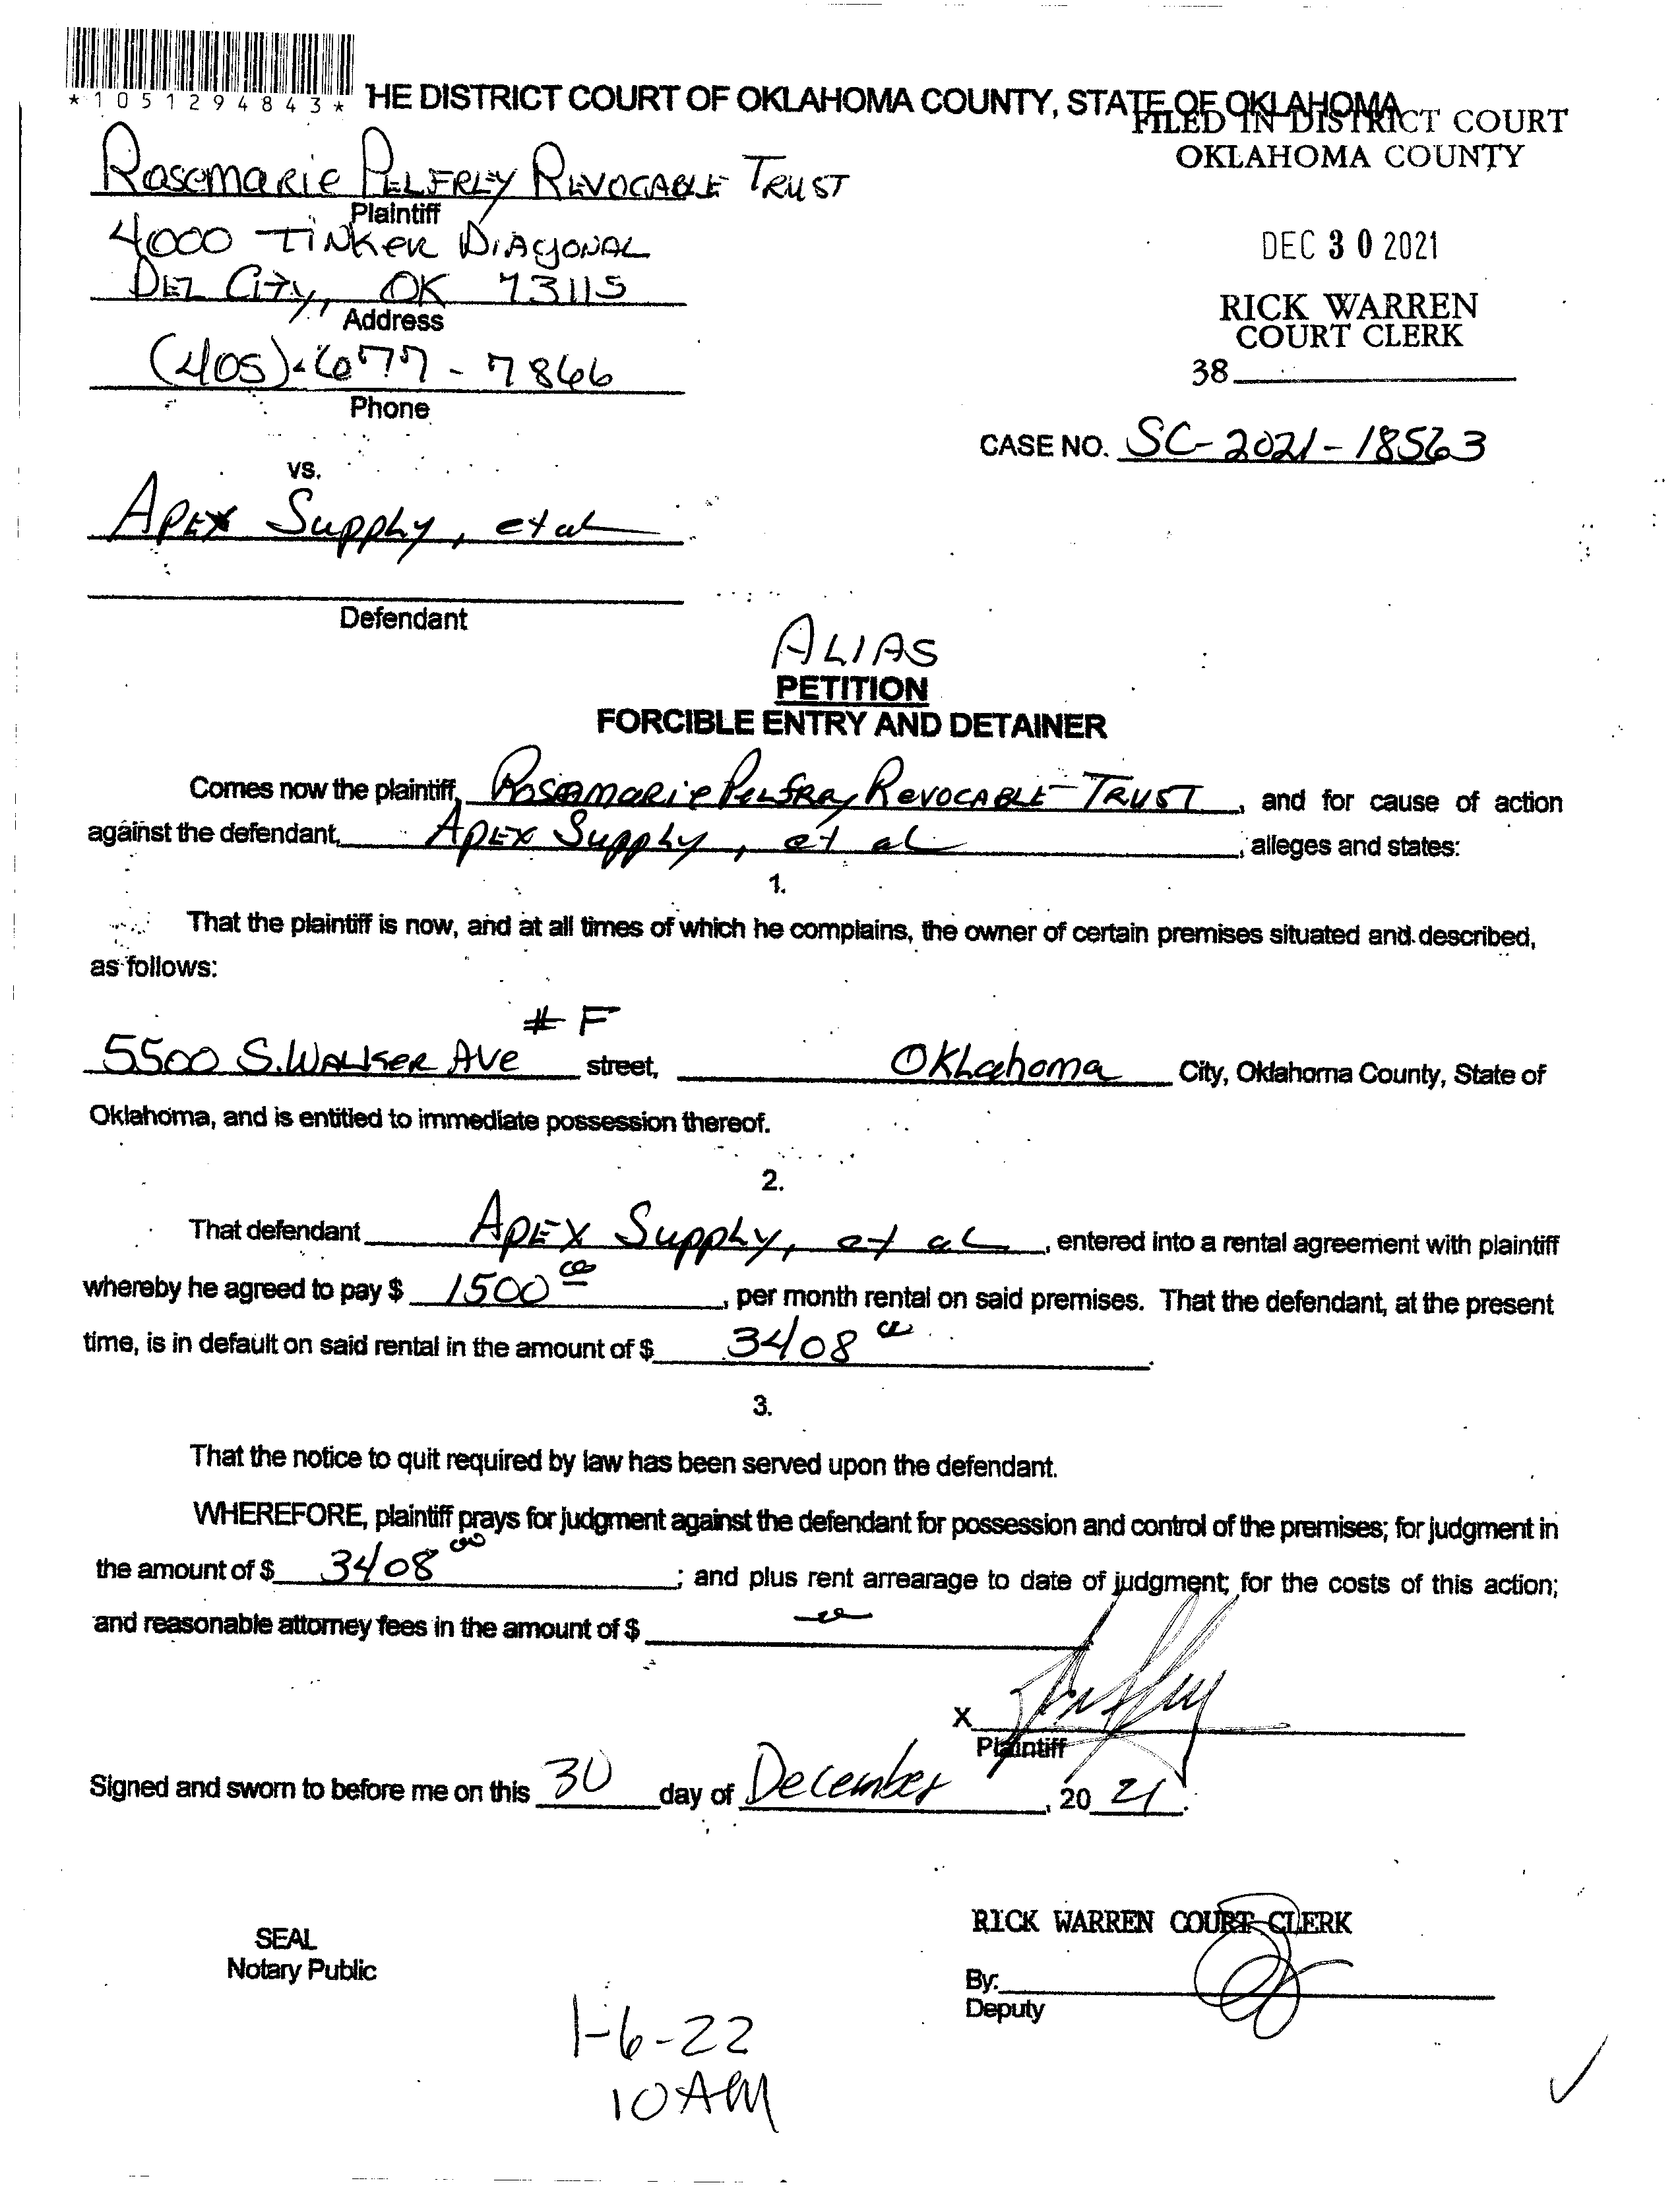 *1051294843*
HE DISTRICT COURT OF OKLAHOMA COUNTY, STATE OF OKLAHOMA
FILED IN DISTRICT COURT
OKLAHOMA COUNTY
Rosemarie Pelfrey Revocable Trust
Plaintiff
4000 Tinker Diagonal
DEC 30 2021
Del City, OK 73115
Address
RICK WARREN
COURT CLERK
(405)-677-7866
Phone
38
CASE NO. SC-2021-18563
vs.
Apex Supply, et al
Defendant
ALIAS
PETITION
FORCIBLE ENTRY AND DETAINER
Comes now the plaintiff, Rosemarie Pelfrey Revocable Trust, and for cause of action
against the defendant, Apex Supply, et al, alleges and states:
1.
That the plaintiff is now, and at all times of which he complains, the owner of certain premises situated and described,
as follows:
# F
5500 S. Walker Ave street, Oklahoma City, Oklahoma County, State of
Oklahoma, and is entitled to immediate possession thereof.
2.
That defendant Apex Supply, et al, entered into a rental agreement with plaintiff
whereby he agreed to pay $ 1500 00, per month rental on said premises. That the defendant, at the present
time, is in default on said rental in the amount of $ 3408 00.
3.
That the notice to quit required by law has been served upon the defendant.
WHEREFORE, plaintiff prays for judgment against the defendant for possession and control of the premises; for judgment in
the amount of $ 3408 00; and plus rent arrearage to date of judgment; for the costs of this action;
and reasonable attorney fees in the amount of $
X
Plaintiff
Signed and sworn to before me on this 30 day of December, 2021.
RICK WARREN COURT CLERK
SEAL
Notary Public
By:
Deputy
1-6-22
10 AM